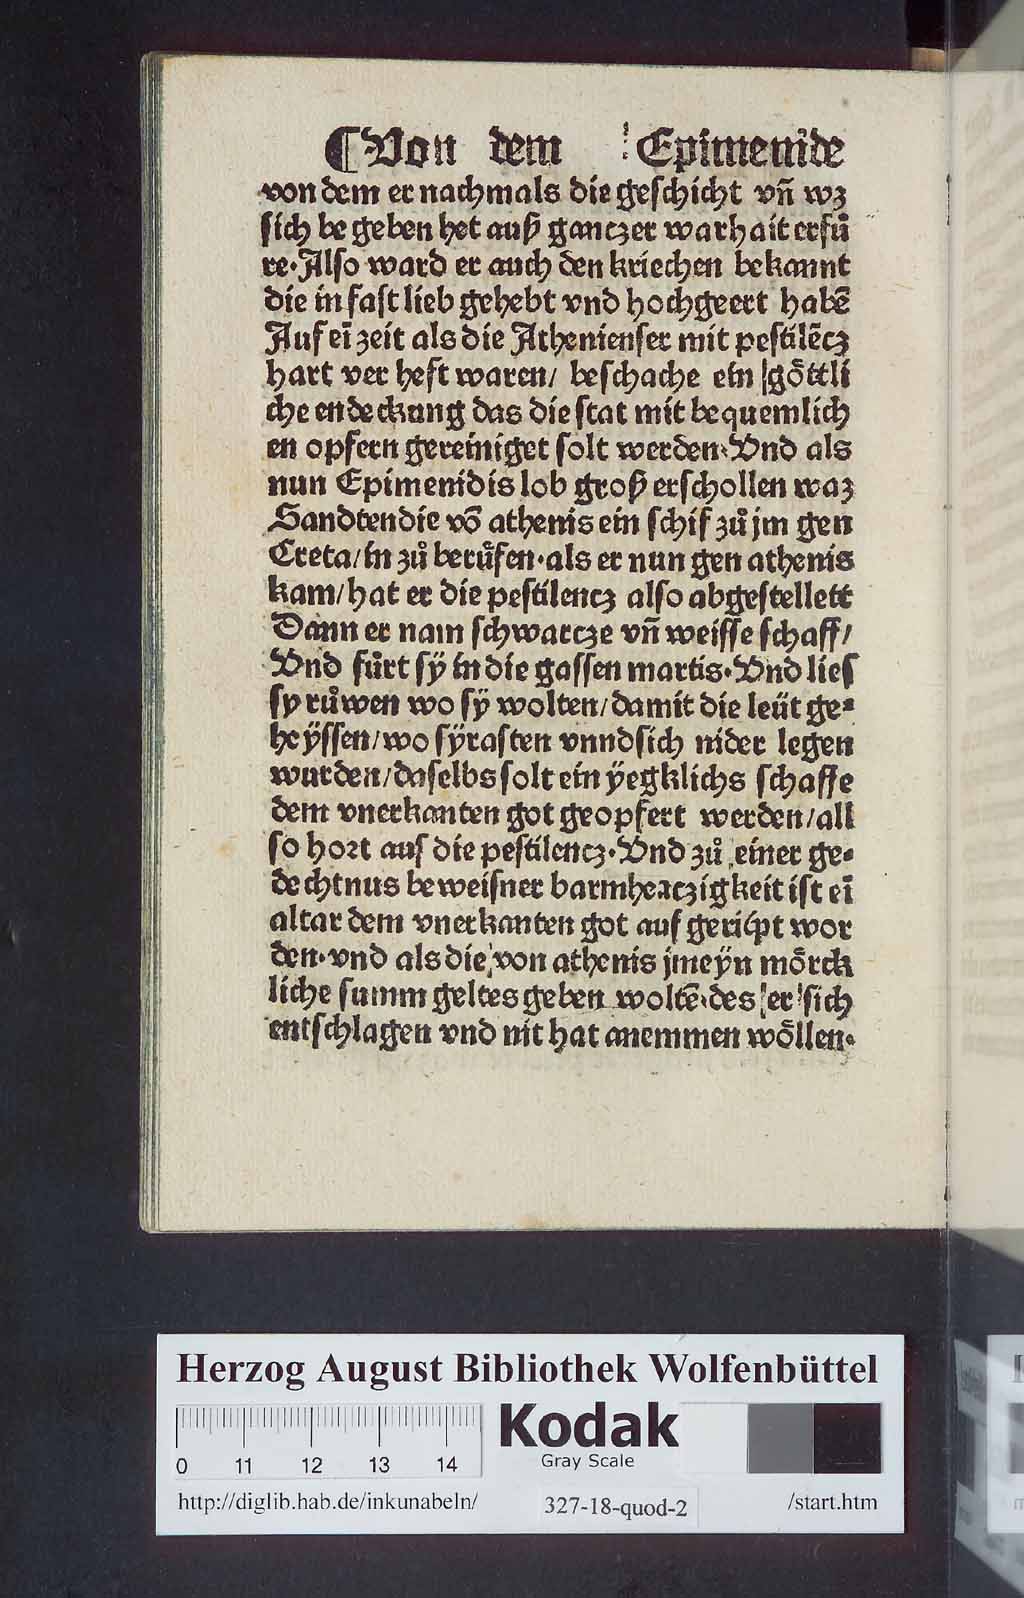 ⸿ Von dem Epimenide
von dem er nachmals die geschicht vn̄ wz
sich be geben het auß ganczer warhait erfuͦ
re·Also ward er auch den kriechen bekannt
die in fast lieb gehebt vnd hochgeert habē
Auf eī zeit als die Athenienser mit pestilēcz
hart ver heft waren/ beschache ein goͤttli
che endeckung das die stat mit bequemlich
en opfern gereiniget solt werden·Vnd als
nun Epimenidis lob groß erschollen waz
Sandten die vō athenis ein schif zuͦ jm gen
Creta/in zuͦ beruͤfen·als er nun gen athenis
kam/hat er die pestilencz also abgestellett
Dann er nam schwarcze vn̄ weisse schaff/
Vnd fuͤrt sÿ in die gassen martis·Vnd lies
sy ruͦwen wo sÿ wolten/damit die leüt ge⸗
heÿssen/wo sÿ rasten vnnd sich nider legen
wurden/daselbs solt ein ÿegklichs schaffe
dem vnerkanten got geopfert werden/all
so hort auf die pestilencz·Vnd zuͦ einer ge⸗
dechtnus beweisner barmherczigkeit ist eī
altar dem vnerkanten got auf gericht wor
den·vnd als die von athenis jm eÿn moͤrck
liche summ geltes geben woltē·des er sich
entschlagen vnd nit hat anemmen woͤllen·
Herzog August Bibliothek Wolfenbüttel
Kodak
Gray Scale
0 11 12 13 14
http://diglib.hab.de/inkunabeln/ 327-18-quod-2 /start.htm